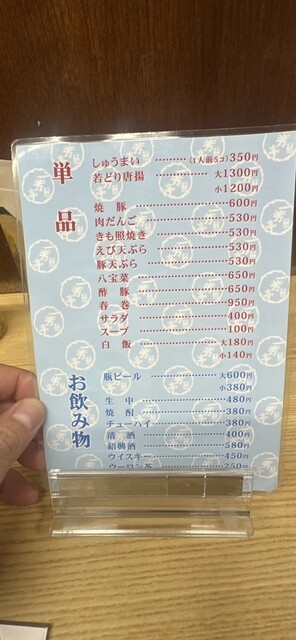 単品
しゅうまい ………(1人前5コ)350円
若どり唐揚 ………………大1300円
小1200円
焼豚 ………………600円
肉だんご ………………530円
きも照焼き ………………530円
えび天ぷら ………………530円
豚天ぷら ………………530円
八宝菜 ………………650円
酢豚 ………………650円
春巻 ………………950円
サラダ ………………400円
スープ ………………100円
白飯 ………………大180円
小140円
お飲み物
瓶ビール ………………大600円
小380円
生中 ………………480円
焼酎 ………………380円
チューハイ ………………380円
清酒 ………………400円
紹興酒 ………………580円
ウイスキー ………………450円
ウーロン茶 ………………250円